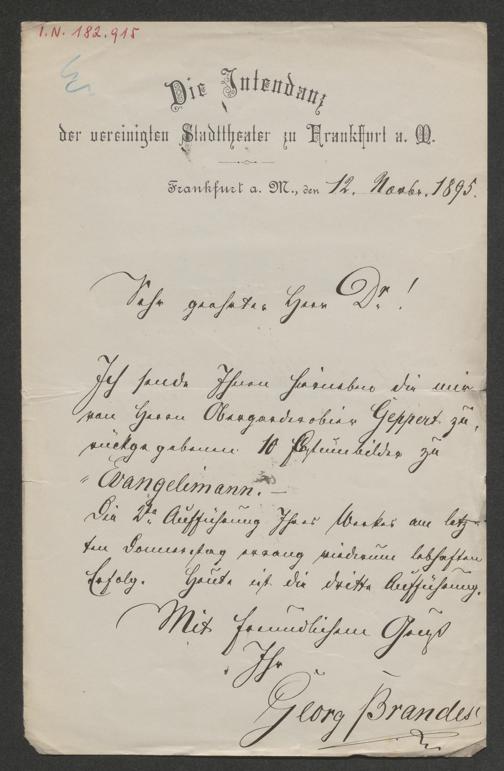 I.N. 182.915
Die Intendanz
der vereinigten Stadttheater zu Frankfurt a. M.
Frankfurt a. M., den 12. Novbr. 1895.
Sehr geehrter Herr Dr!
Ich sende Ihnen hierneben die mir
von Herrn Obergarderobier Geppert zu-
rückgegebenen 10 Costümbilder zu
"Evangelimann. —
Die 2te Aufführung Ihres Werkes am letz-
ten Donnerstag errang wiederum lebhaften
Erfolg. Heute ist die dritte Aufführung.
Mit freundlichem Gruß
Ihr
Georg Brandes